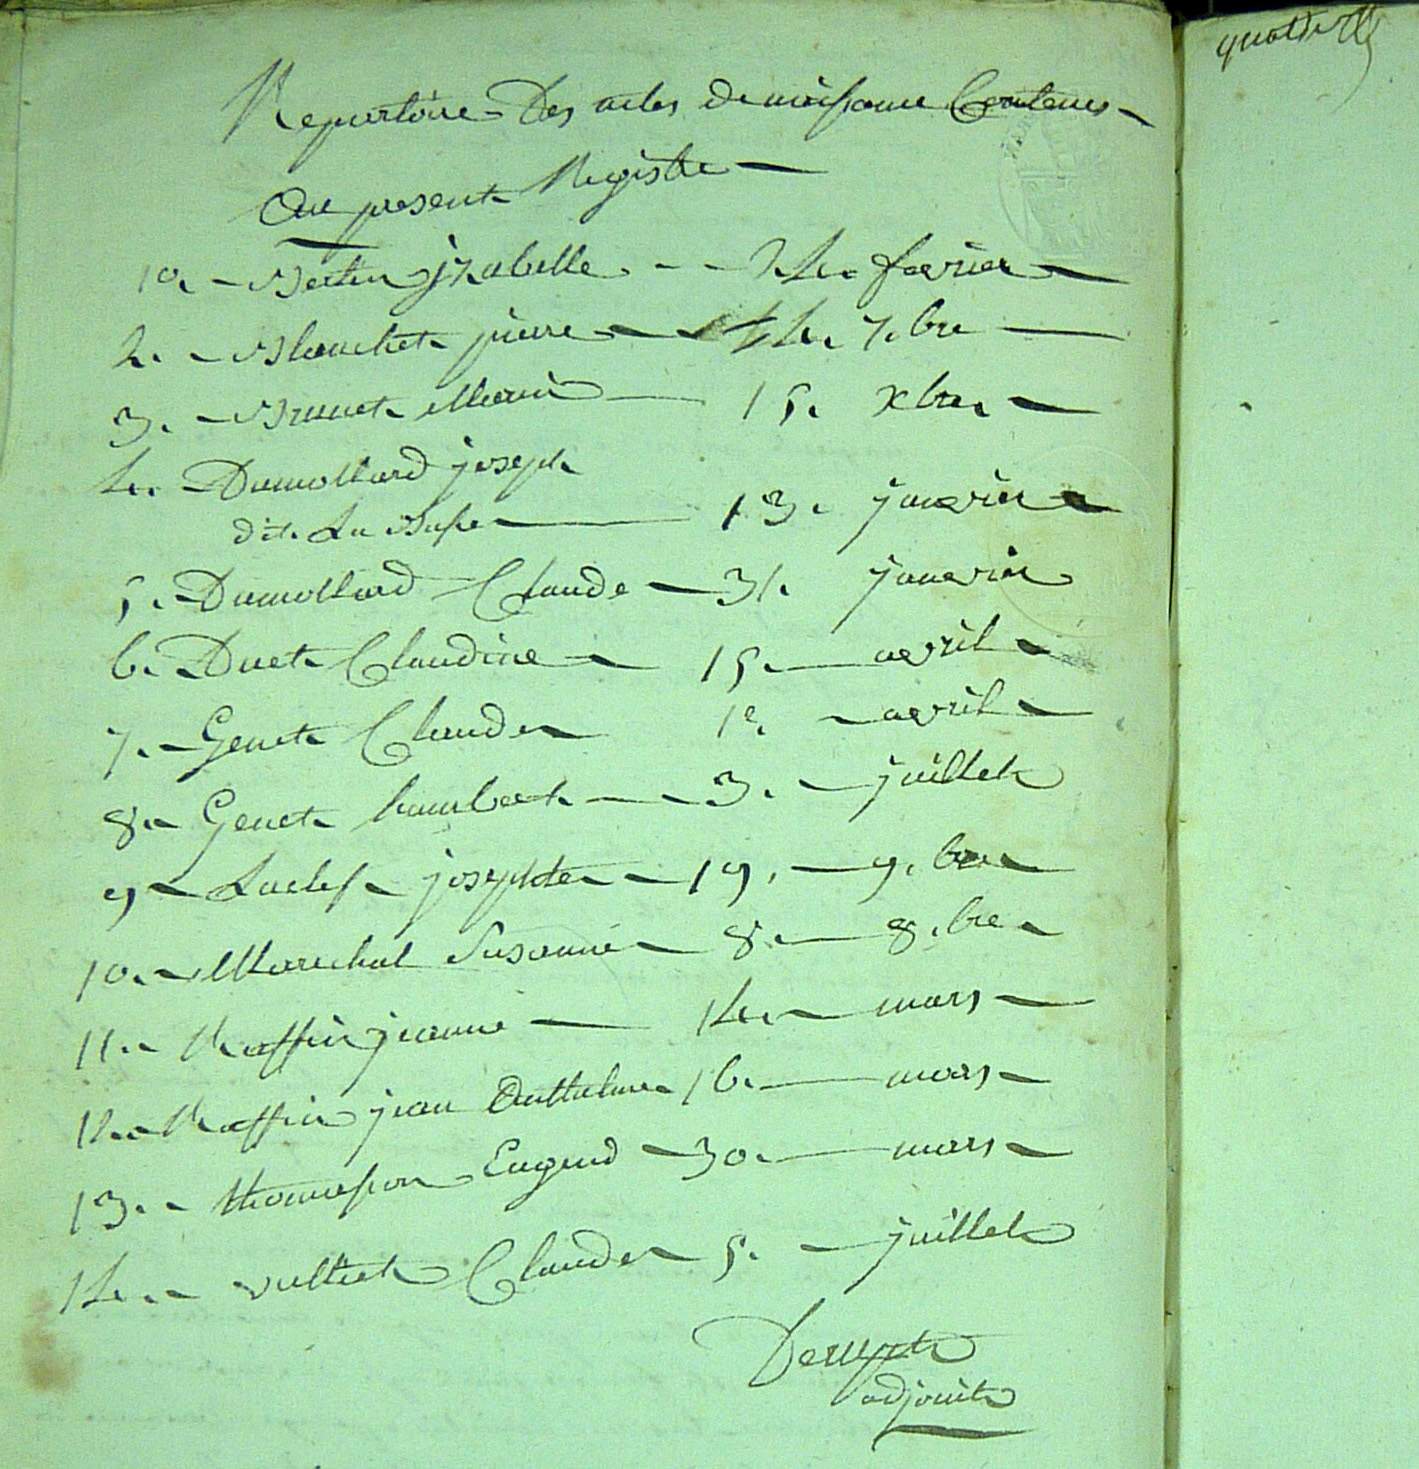 Repertoire Des actes de naissance Contenus
Au present Registre
1o. Bertin jzabelle 24. fevrier
2. Blanchet pierre 14. 7.bre
3. Brunet Marie 15. Xbre.
4. Dumollard joseph
dit. La
13. janvier
5. Dumollard Claude 31. janvier
6. Duet Claudine 15. avril
7. Genet Claude 1e. avril
8. Genet humbert 3. juillet
9 josephte 19. 9.bre
10. Marechal Susanne 8. 8.bre
11. Raffin jeanne 14. mars
12. Raffin jean Anthelme 16. mars
13. thomasson Eugene 30. mars
14. vulliet Claude 5. juillet
adjoint